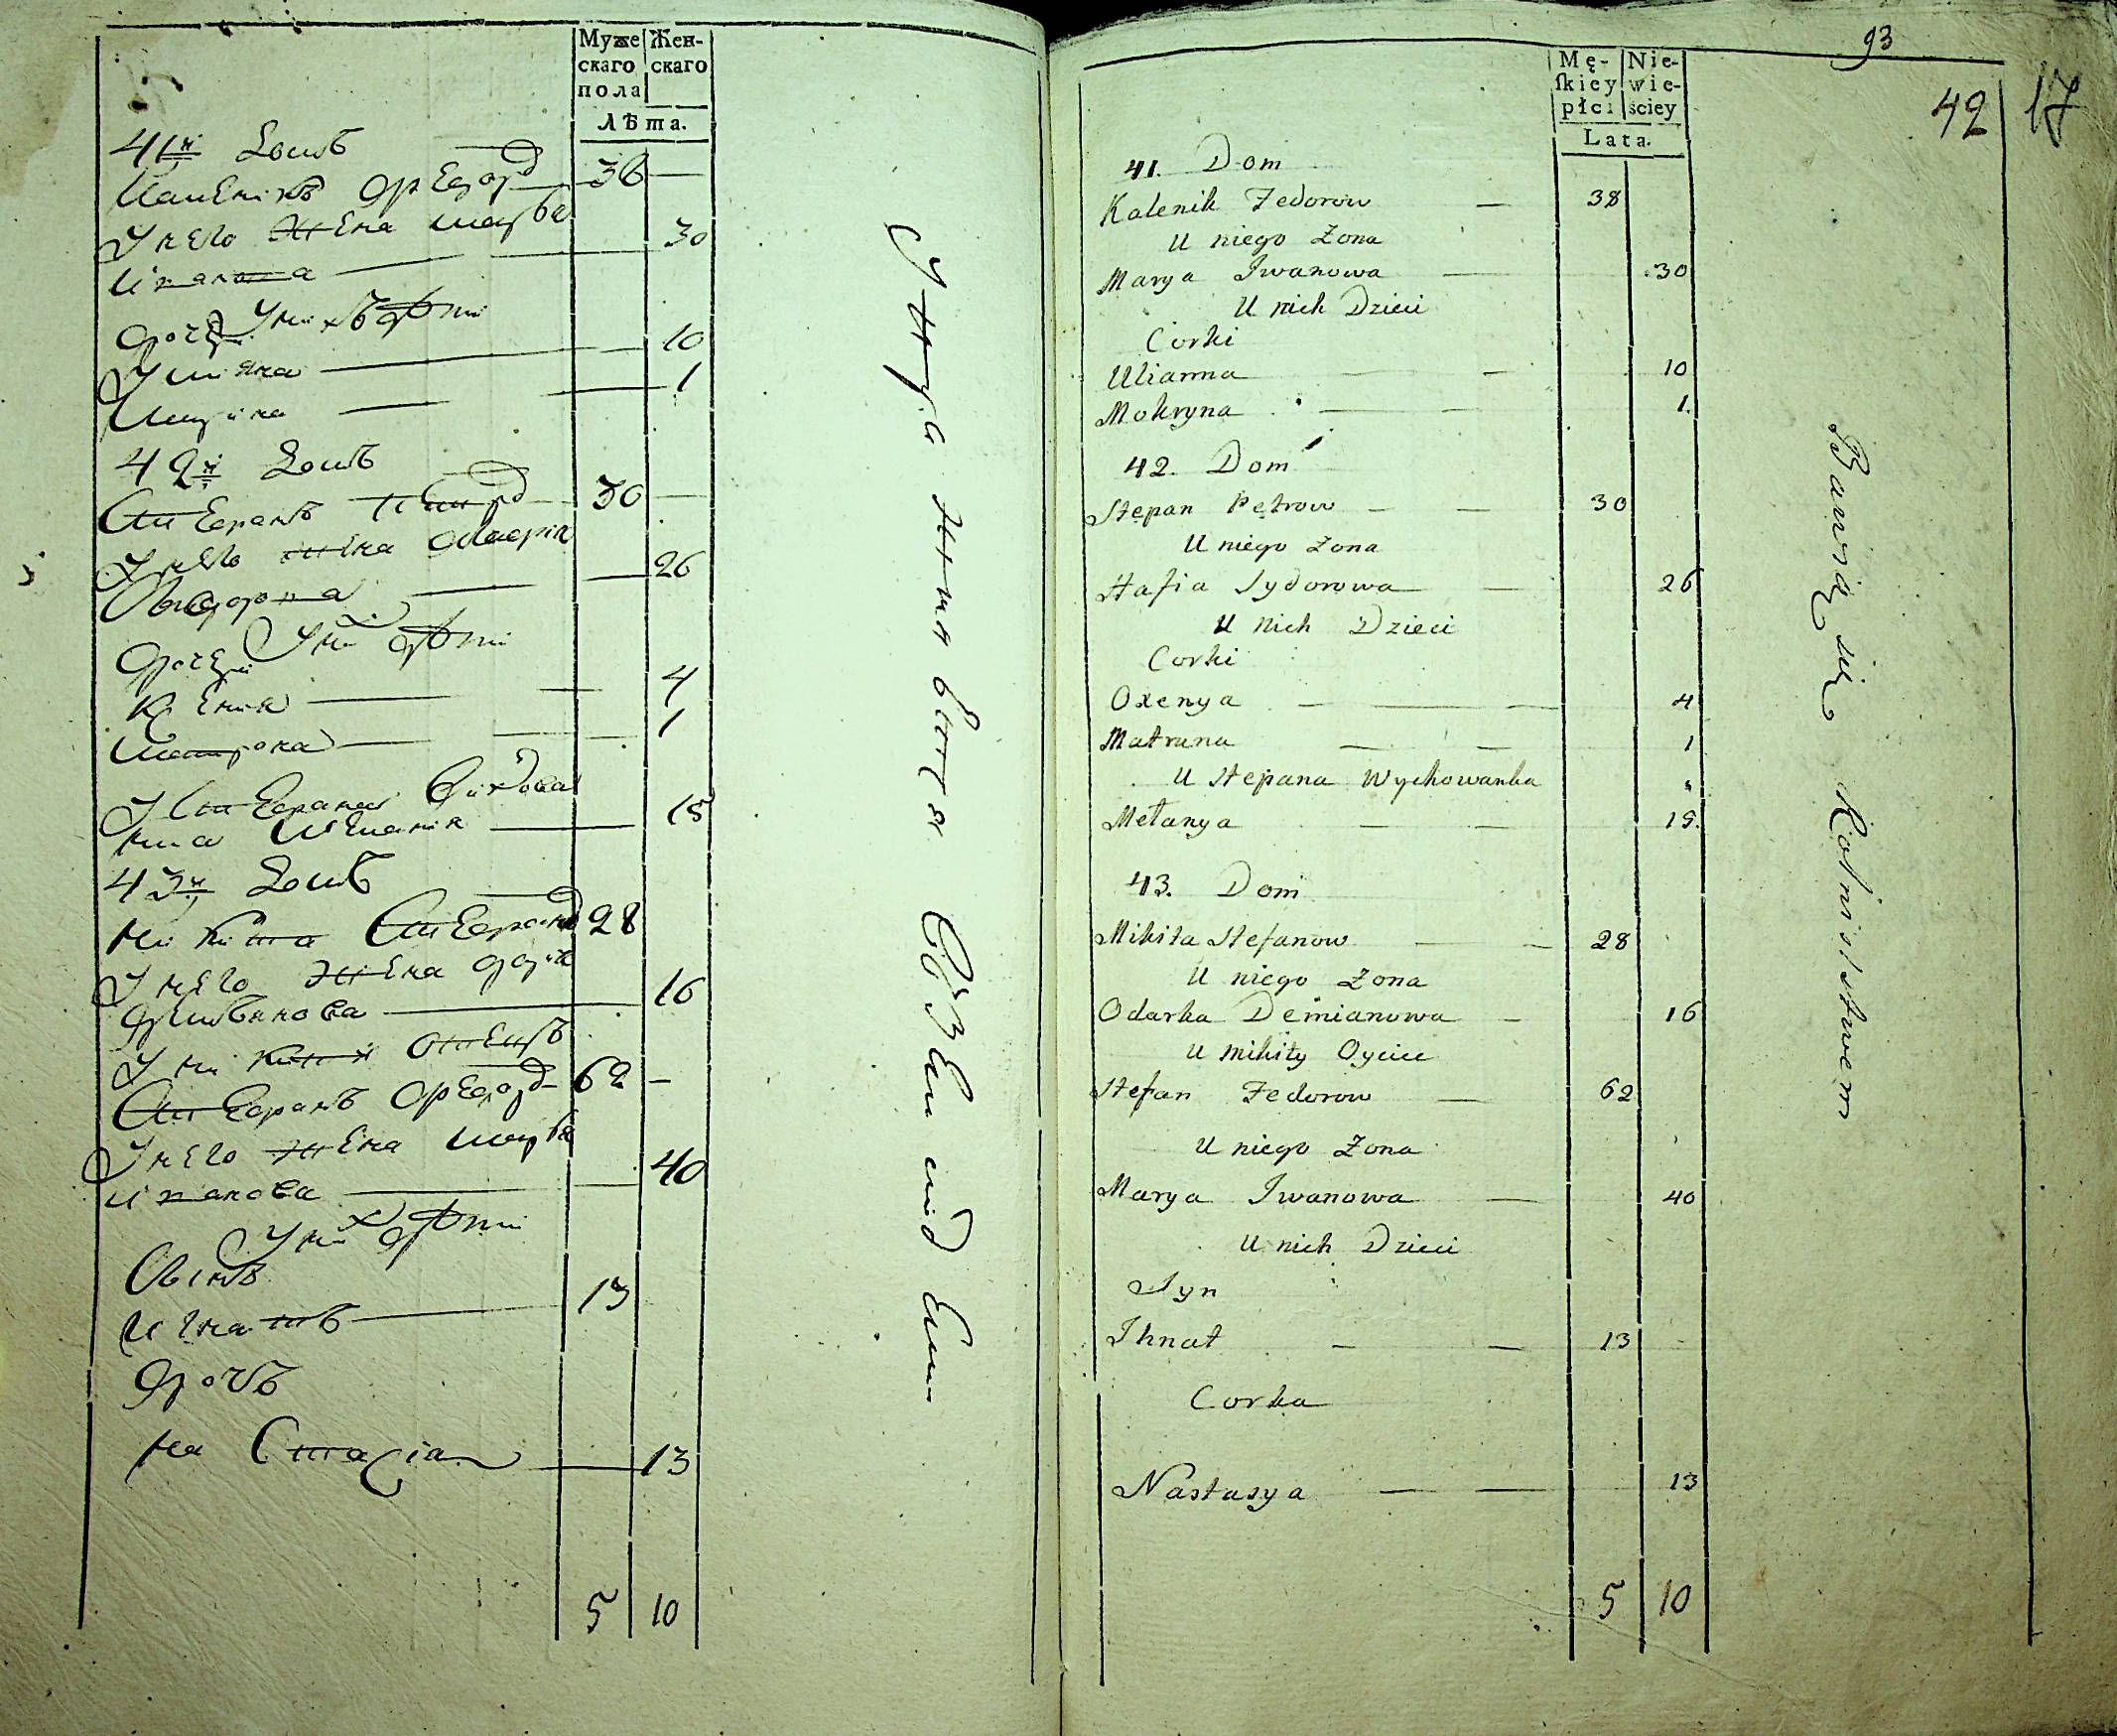 Муже Жен-
скаго скаго
пола
Лѣта.
41й Домъ
Каленикъ Федоро 38
У него жена Марья
Иванова 30
У нихъ дѣти
дочери
Ульяна 10
Мокрина 1
42й Домъ
Степанъ Петро 30
У него жена
Сидорова 26
У них дѣти
дочери
Ксения 4
Матрона 1
У Степана
Мелания 15
43й Домъ
Никита Степано 28
У него жена Дарья
Демьянова 16
У Никиты Отецъ
Степанъ Федоро 62
У него жена Марья
Иванова 40
У них дѣти
Сынъ
Игнатъ 13
Дочь
Настасия 13
5 10
93
42 17
Mę- Nie-
ſkiey wie-
płci ściey
Lata.
41. Dom
Kalenik Fedorow 38
U niego Zona
Marya Iwanowa 30
U nich Dzieci
Corki
Ulianna 10
Mokryna 1.
42. Dom
Stepan Petrow 30
U niego Zona
Hafia Sydorowa 26
U nich Dzieci
Corki
Oxenya 4
Matruna 1
U Stepana Wychowanka
Melanya 15.
43. Dom
Mikita Stefanow 28
U niego Zona
Odarka Demianowa 16
U Mikity Oyciec
Stefan Fedorow 62
U niego Zona
Marya Iwanowa 40
U nich Dzieci
Syn
Ihnat 13
Corka
Nastasya 13
5 10
Bawią się Rolnistwem